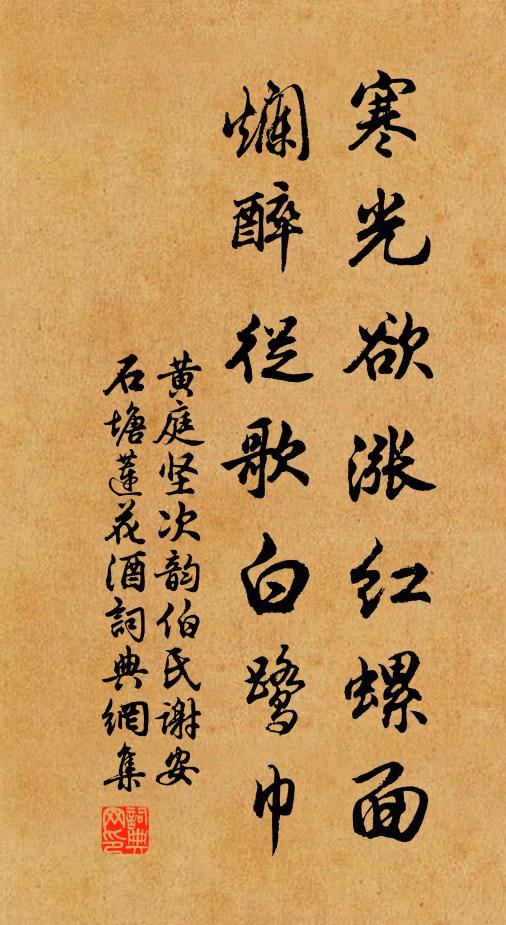 寒光欲涨红螺面
爛醉從歌白鷺巾
黄庭坚次韵伯氏谢安
石塘蓮花酒詞典網集
詞典网印